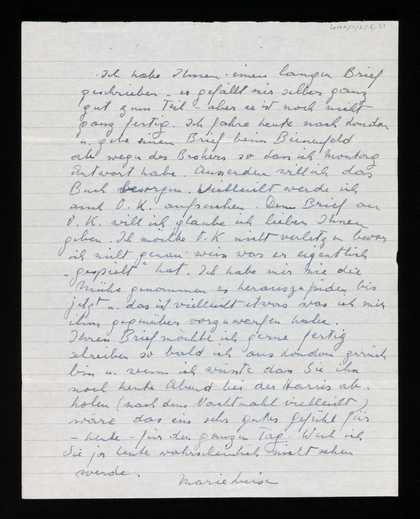 Ich habe Ihnen einen langen Brief
geschrieben - es gefällt mir selber ganz
gut zum Teil - aber er ist noch nicht
ganz fertig. Ich fahre heute nach London
u. gebe einen Brief beim
ab wegen des Brokers so dass ich Montag
Antwort habe. Ausserdem will ich das
Buch besorgen. Vielleicht werde ich
auch O. K. aufsuchen. Den Brief an
O. K. will ich glaube ich lieber Ihnen
geben. Ich möchte O. K. nicht verletzen bevor
ich nicht genau weis was er eigentlich
"gespielt" hat. Ich habe mir nie die
Mühe genommen es herauszufinden bis
jetzt u. das ist vielleicht etwas was ich mir
ihm gegenüber vorzuwerfen habe.
Ihren Brief möchte ich gerne fertig
schreiben so bald ich aus London zurück
bin u. wenn ich wüsste dass Sie ihn
noch heute Abend bei der Harris ab-
holen (nach dem Nachtmahl vielleicht)
wäre das ein sehr gutes Gefühl für
- heute - für den ganzen Tag. Weil ich
Sie ja heute wahrscheinlich nicht sehen
werde.
Marieluise